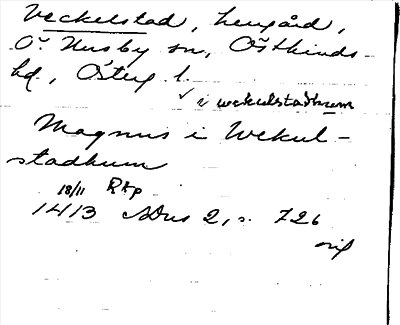 Veckelstad, herrgård,
Ö. Husby sn, Östkinds
hd, Östergl.
✓ i wekulstadhum
Magnus i Wekul-
stadhum
18/11 Rkp
1413 SDns 2, s. 726
orig